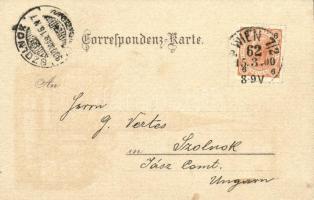 Correspondenz-Karte.
SZOLNOK
WIEN 7/2
62
15.3.00
8-9V
An
Herrn
G. Vertes
in Szolnok
Jász Comt.
Ungarn